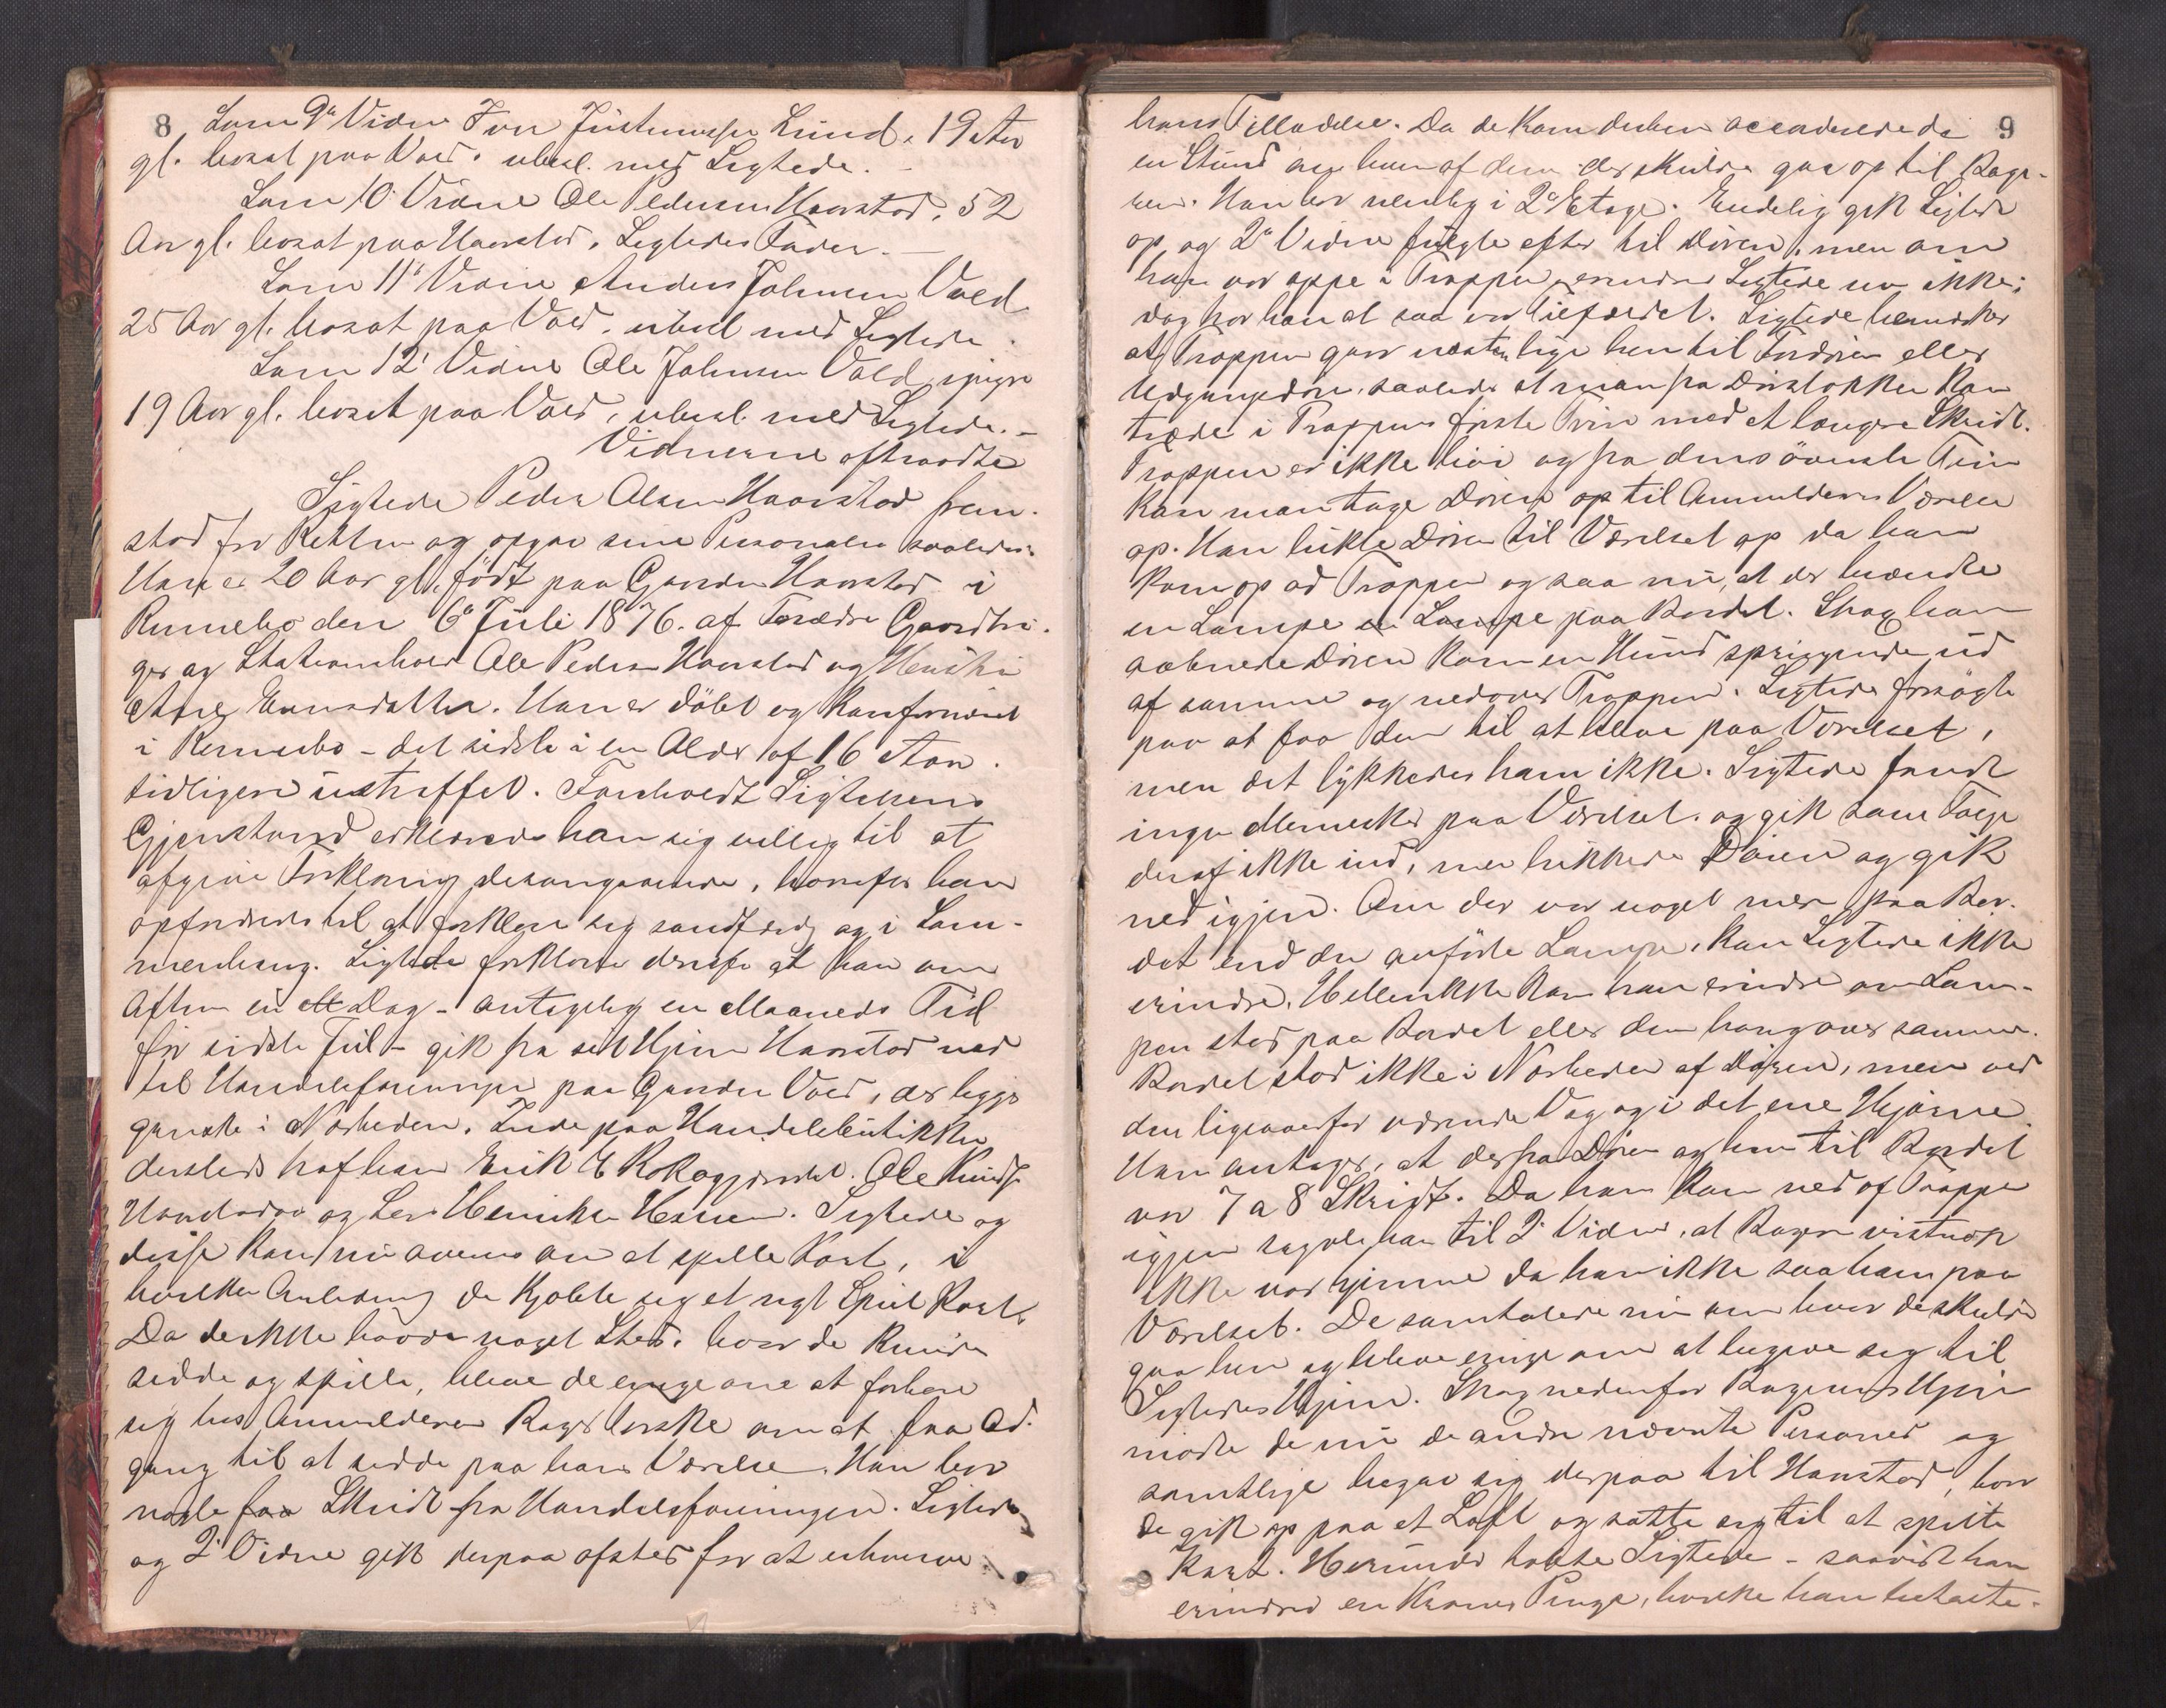 8
Som 9de Vidne Iver Justinussen Lund, 19 Aar
gl. bosat paa Vold. ubesl. med Sigtede.
Som 10' Vidne Ole Pedersen Haarstad, 52
Aar gl. bosat paa Haarstad, Sigtedes Fader.
Som 11' Vidne Anders Johnsen Vold
25 Aar gl. bosat paa Vold, ubesl. med Sigtede.
Som 12' Vidne Ole Johnsen Vold yngre
19 Aar gl. bosat paa Vold, ubesl. med Sigtede. -
Vidnerne aftraadte
Sigtede Peder Olsen Haarstad frem-
stod for Retten og opgav sine Personalia saaledes:
Han er 20 Aar gl. født paa Gaarden Haarstad i
Rennebo den 6' Juli 1876. af Forældre Gaardbru-
ger og Stationsholder Ole Pedersen Haarstad og Hustru
Ane Ensdatter. Han er døbt og konfirmeret
i Rennebo - det sidste i en Alder af 16 Aar.
tidligere ustraffet. Foreholdt Sigtelsens
Gjenstand erklærede han sig villig til at
afgive Forklaring desangaaende, hvorefter han
opfordredes til at forklare sig sandfærdig og i Sam-
menhæng. Sigtede forklarer derefter at han om
Aften en Dag - antagelig en Maaneds Tid
før sidste Jul - gik fra sit Hjem Haarstad ned
til Handelsforeningen paa Gaarden Vold, der ligger
ganske i Nærheden. Inde paa Handelsbutikken
dersteds traf han Erik E. Ole Knudsen
og Henriksen. Sigtede og
disse kom nu overens om at spille Kort, i
hvilken Anledning de kjøbte sig et nyt Spil Kort.
Da de ikke havde noget Sted, hvor de kunde
sidde og spille, bleve de enige om at forhøre
sig hos Anmelderen Bager om at faa Ad-
gang til at sidde paa hans Værelse. Han bor
nogle faa Skridt fra Handelsforeningen. Sigtede
og 2' Vidne gik derpaa afsted for at erhverve
9
hans Tilladelse. Da de kom derhen accorderede de
en Stund om hvem af dem der skulde gaa op til Bage-
ren. Han bor nemlig i 2' Etage. Endelig gik Sigtede
op, og 2' Vidne fulgte efter til Døren, men om
han var oppe i Trappen, erindrer Sigtede nu ikke;
dog tror han at saa var Tilfældet. Sigtede bemærker
at Trappen gaar næsten lige hen til Fordøren eller
Udgangsdøren, saaledes at man fra Dørstokken kan
træde i Trappens første Trin med et længere Skridt.
Trappen er ikke høi og fra dens øverste Trin
kan man tage Døren op til Anmelderens Værelse
op. Han lukte Døren til Værelset op da han
kom op ad Trappen og saa nu, at der brændte
en Lampe en Lampe paa Bordet. Strax han
aabnede Døren kom en Hund springende ud
af samme og nedover Trappen. Sigtede forsøgte
paa at faa den til at blive paa Værelset,
men det lykkedes ham ikke. Sigtede fandt
ingen Mennesker paa Værelset, og gik som Følge
deraf ikke ind, men lukkede Døren og gik
ned igjen. Om der var noget mere paa Bor-
det end den anførte Lampe, kan Sigtede ikke
erindre. Heller ikke kan han erindre om Lam-
pen stod paa Bordet eller den hang over samme.
Bordet stod ikke i Nærheden af Døren, men ved
den ligeoverfor værende Væg og i det ene Hjørne.
Han antager, at der fra Døren og hen til Bordet
var 7 a 8 Skridt. Da han kom ned af Trappen
igjen sagde han til 2' Vidne, at Bageren vistnok
ikke var hjemme da han ikke saa ham paa
Værelset. De samtalede nu om hvor de skulde
gaa hen og bleve enige om at begive sig til
Sigtedes Hjem. Strax nedenfor Bagerens Hjem
mødte de nu de andre nævnte Personer og
samtlige begav sig derpaa til Haarstad, hvor
de gik op paa et Loft og satte sig til at spille
Kort. Herunder tabte Sigtede - saavidt han
erindrer en Krones Penge, hvilke han betalte.